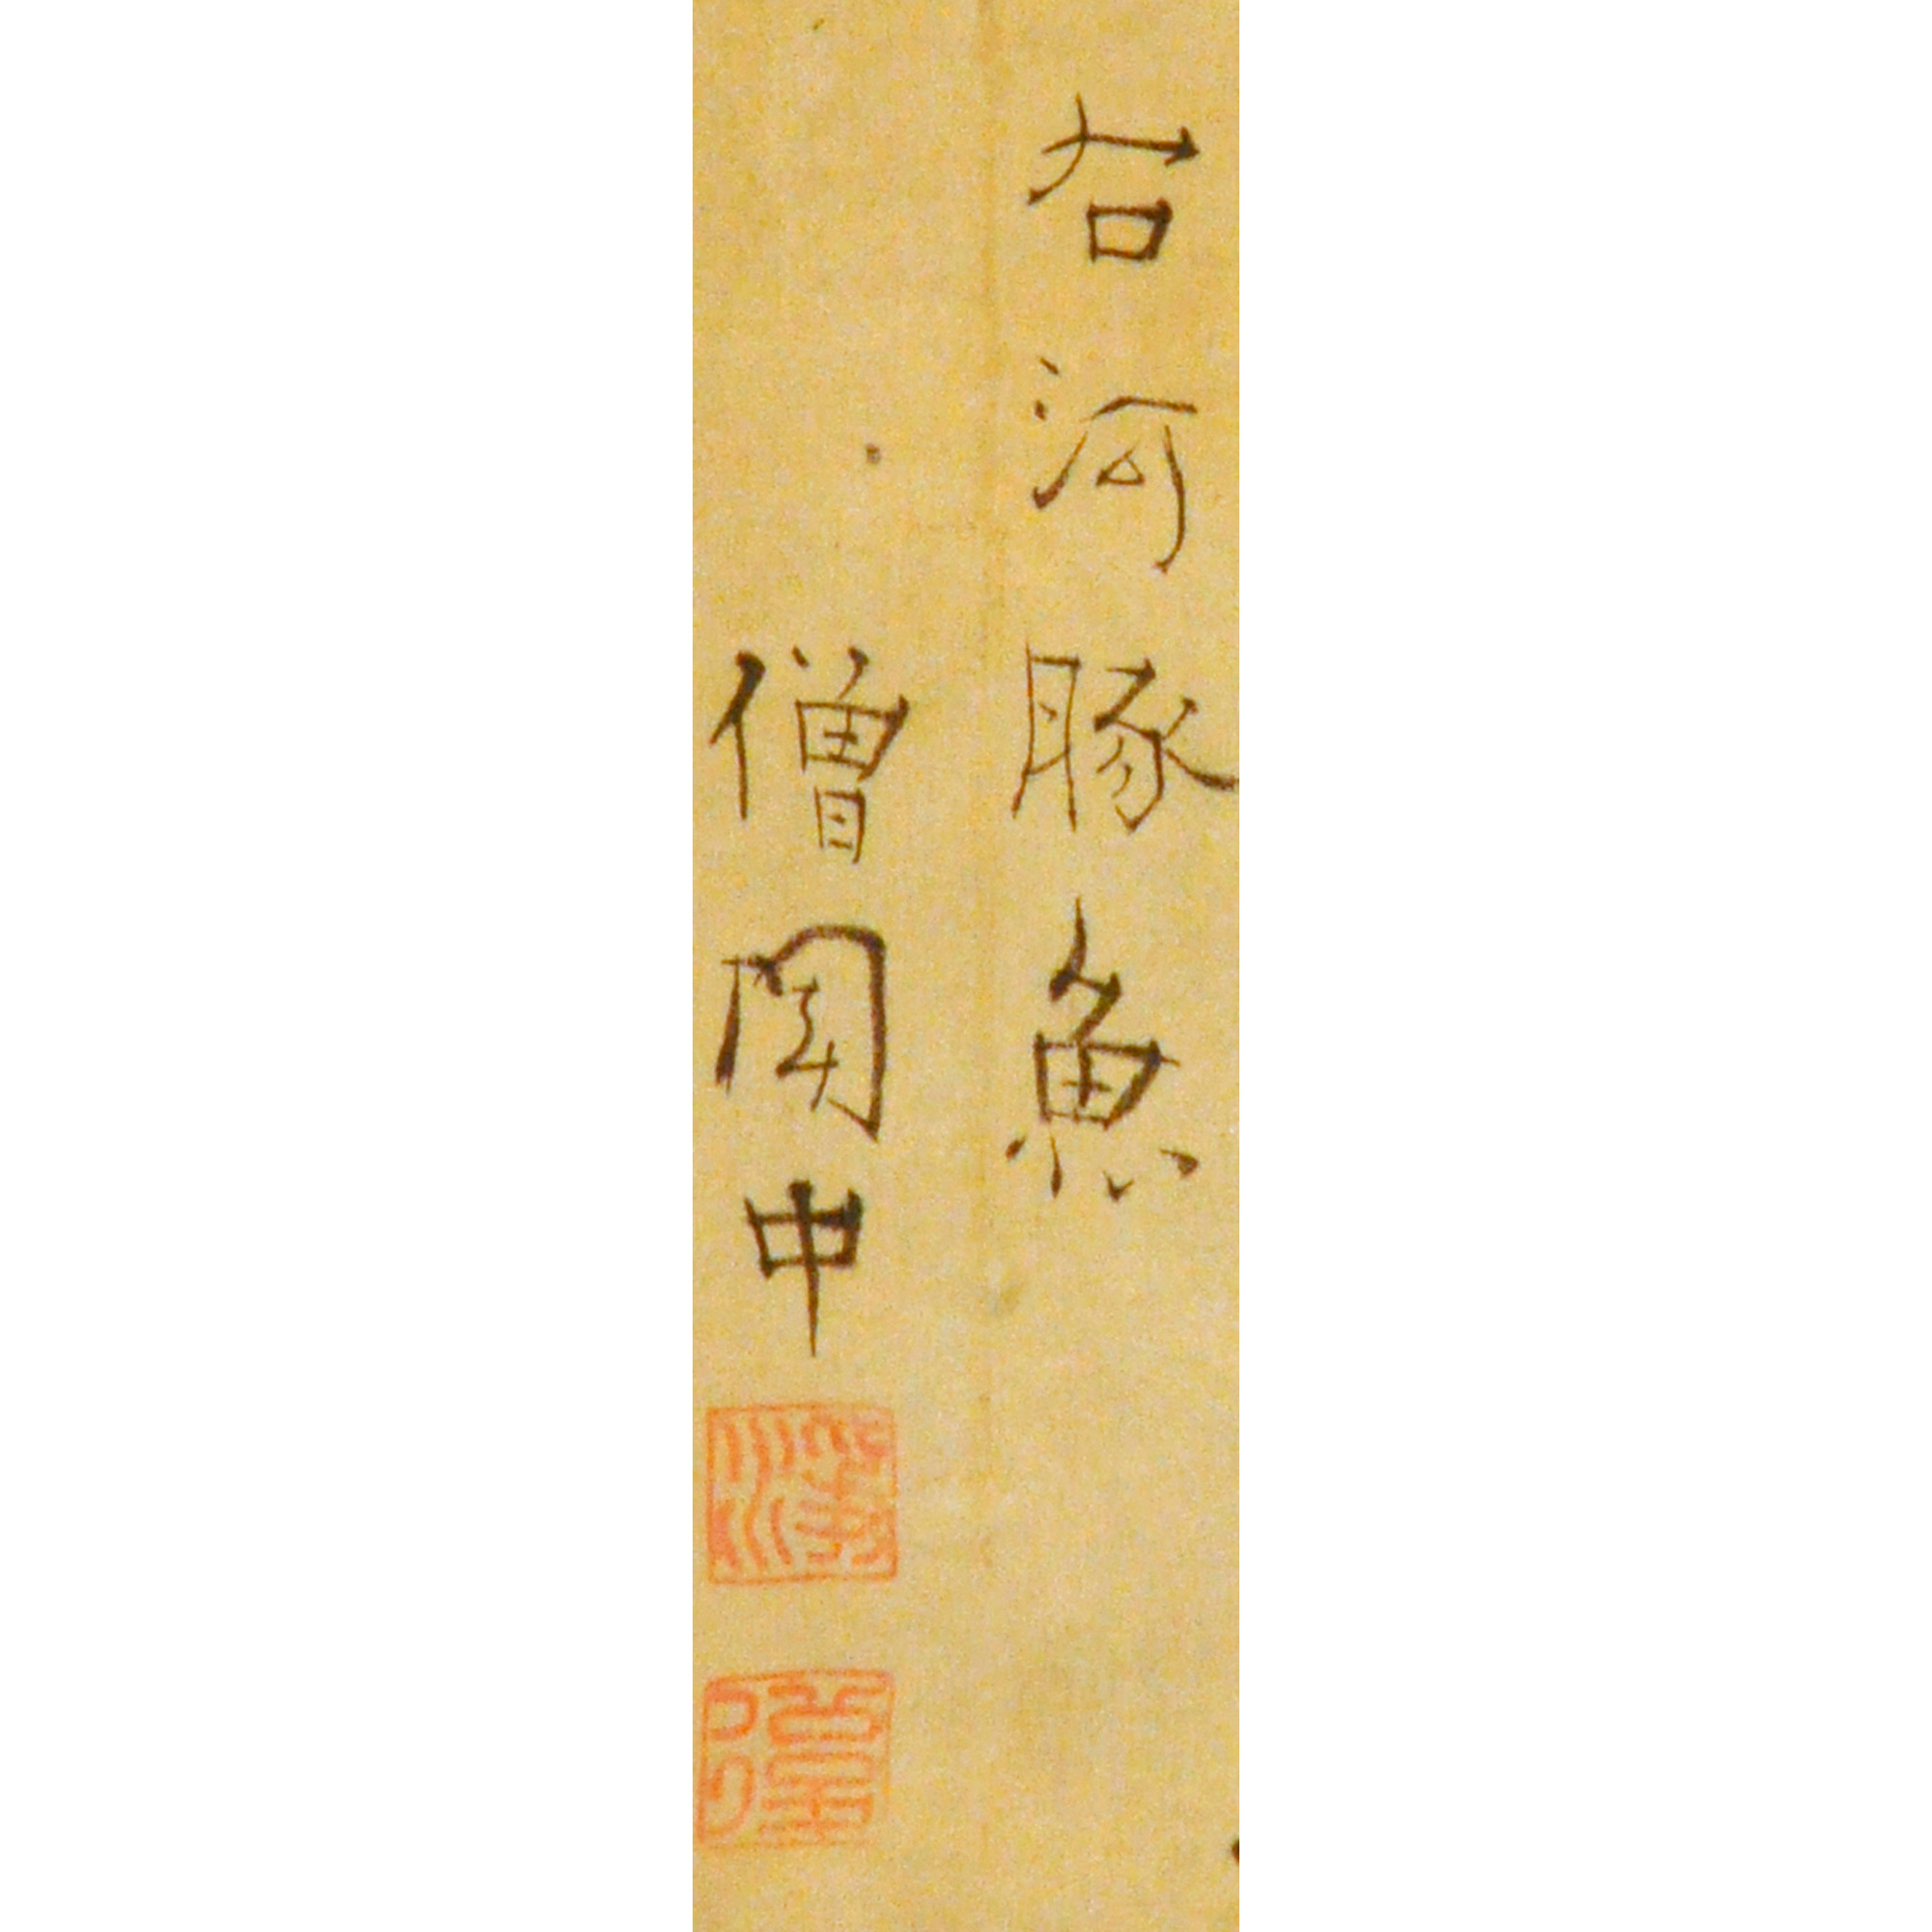 右河豚魚
僧関中